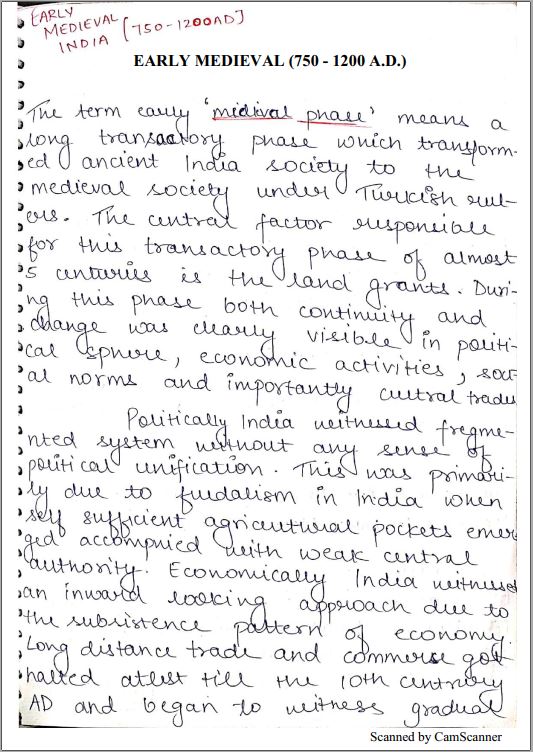 EARLY
MEDIEVAL [750-1200AD]
INDIA
EARLY MEDIEVAL (750 - 1200 A.D.)
The term early 'medieval phase' means a
long transactory phase which transform-
ed ancient India society to the
medieval society under Turkish rul-
ers. The central factor responsible
for this transactory phase of almost
5 centuries is the land grants. Duri-
ng this phase both continuity and
change was clearly visible in politi-
cal sphere, economic activities, soci-
al norms and importantly cultural
Politically India witnessed fregme-
nted system without any sense of
political unification. This was primari-
ly due to fuedalism in India when
self sufficient agricultural pockets emer
ged accompnied with weak central
authority. Economically India witnessed
an inward looking approach due to
the subsistence pattern of economy.
Long distance trade and commerse got
halted atlest till the 10th century
AD and began to witness gradual
Scanned by CamScanner